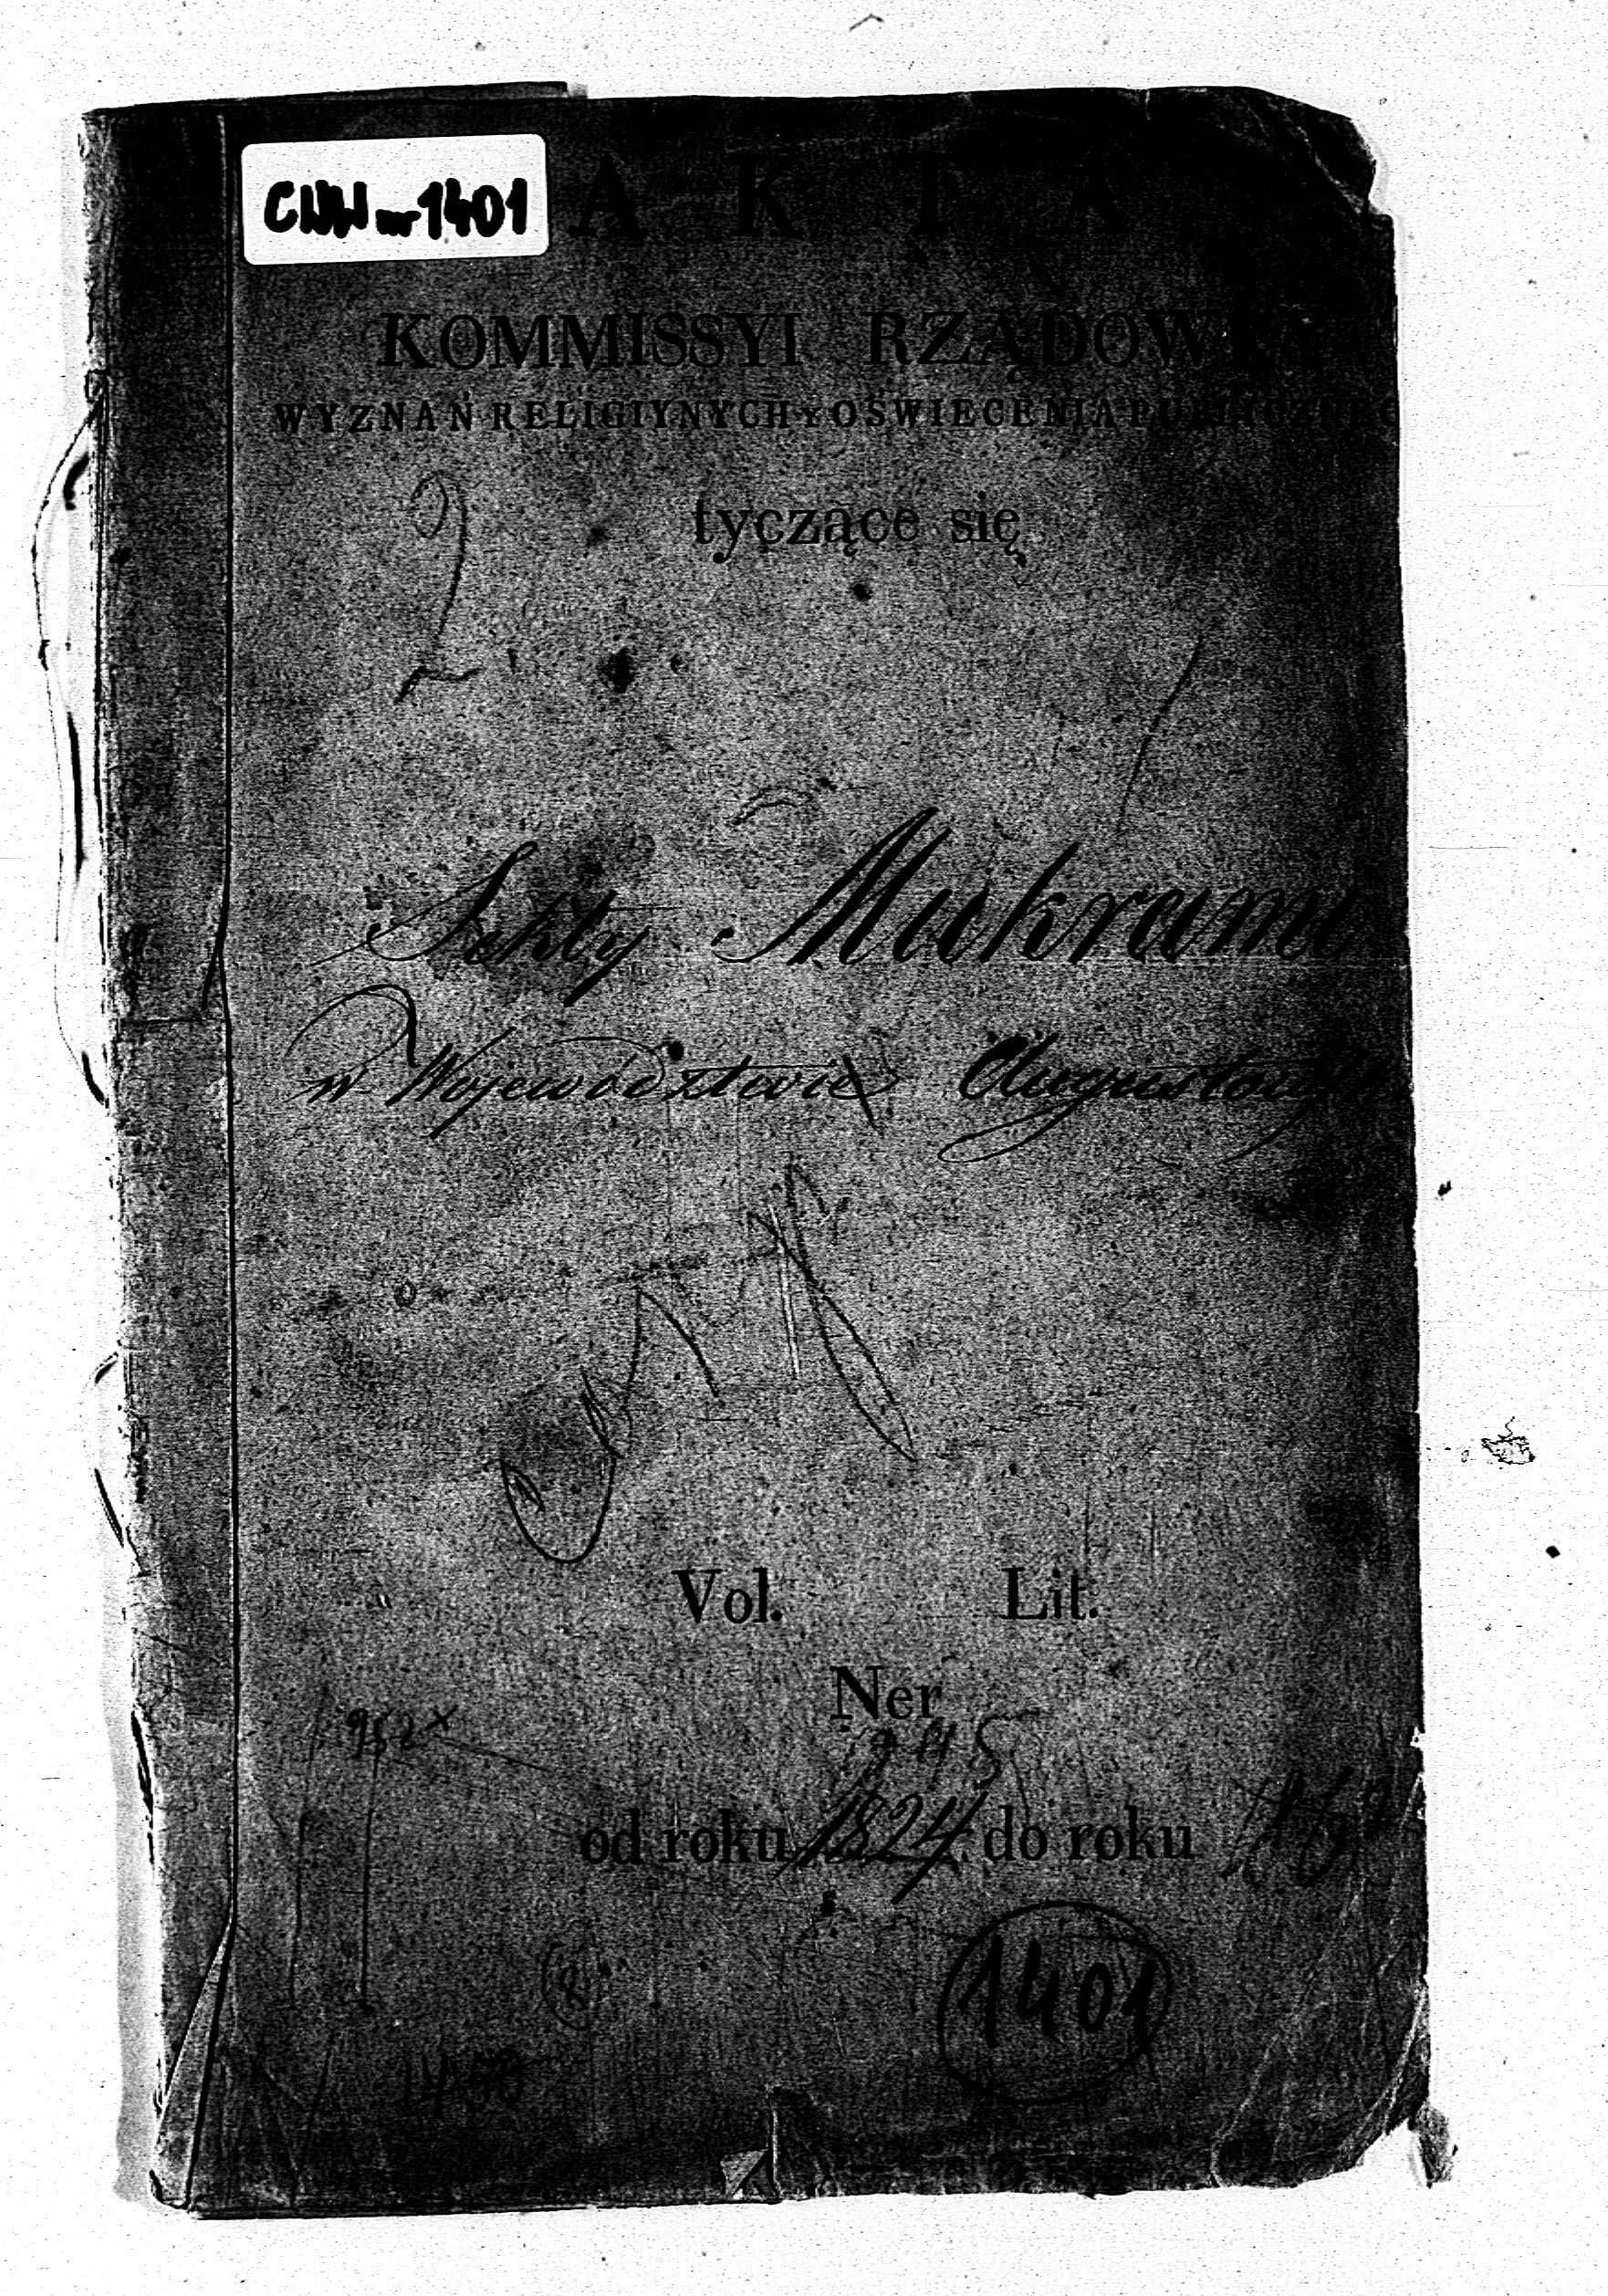 CWW nr 1401
A K T A
KOMMISSYI RZĄDOWEY
WYZNAŃ RELIGIYNYCH Y OŚWIECENIA PUBLICZNEG
tyczące się
Sekty Mukrami
w Województwie Augustows
Vol. Lit.
Ner
1945
952 x
od roku 1824 do roku
8
1401